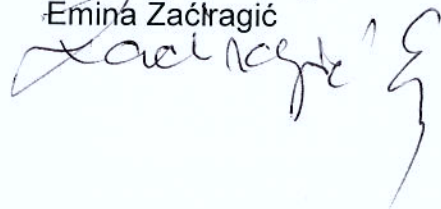 Emina Zaćiragić
Zaćiragić E